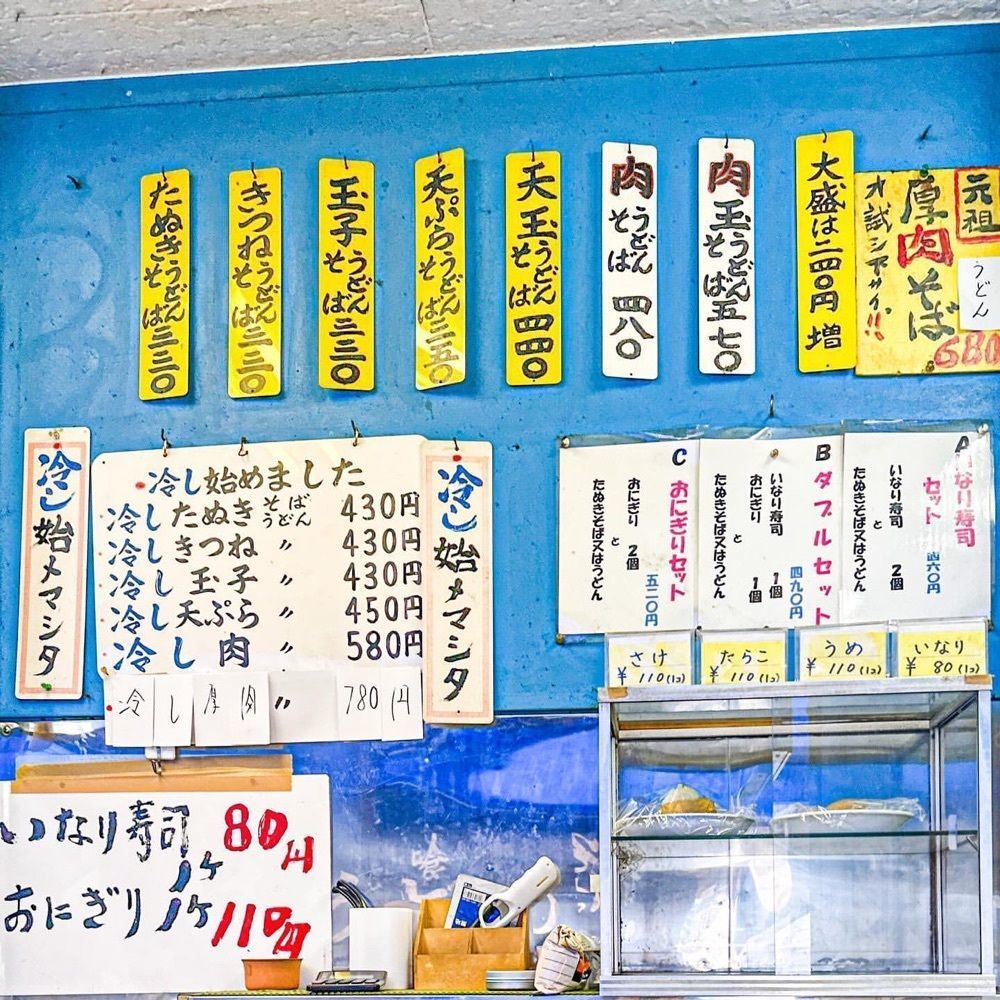 たぬきうどんそば三三〇
きつねうどんそば三三〇
玉子うどんそば三三〇
天ぷらうどんそば三五〇
天玉うどんそば四四〇
肉うどんそば 四八〇
肉玉うどんそば五七〇
大盛は二四〇円増
元祖
厚肉そば
うどん
オ試シ下サイ!!
680
冷し始メマシタ
冷し始めました
冷したぬきそばうどん 430円
冷しきつね 〃 430円
冷し玉子 〃 430円
冷し天ぷら 〃 450円
冷し肉 〃 580円
冷し厚肉 〃 780円
冷し始メマシタ
A いなり寿司
セット 四六〇円
いなり寿司 2個
と
たぬきそば又はうどん
B ダブルセット
四九〇円
いなり寿司 1個
おにぎり 1個
と
たぬきそば又はうどん
C おにぎりセット
五二〇円
おにぎり 2個
と
たぬきそば又はうどん
さけ
¥110(1コ)
たらこ
¥110(1コ)
うめ
¥110(1コ)
いなり
¥80(1コ)
いなり寿司 1ケ 80円
おにぎり 1ケ 110円